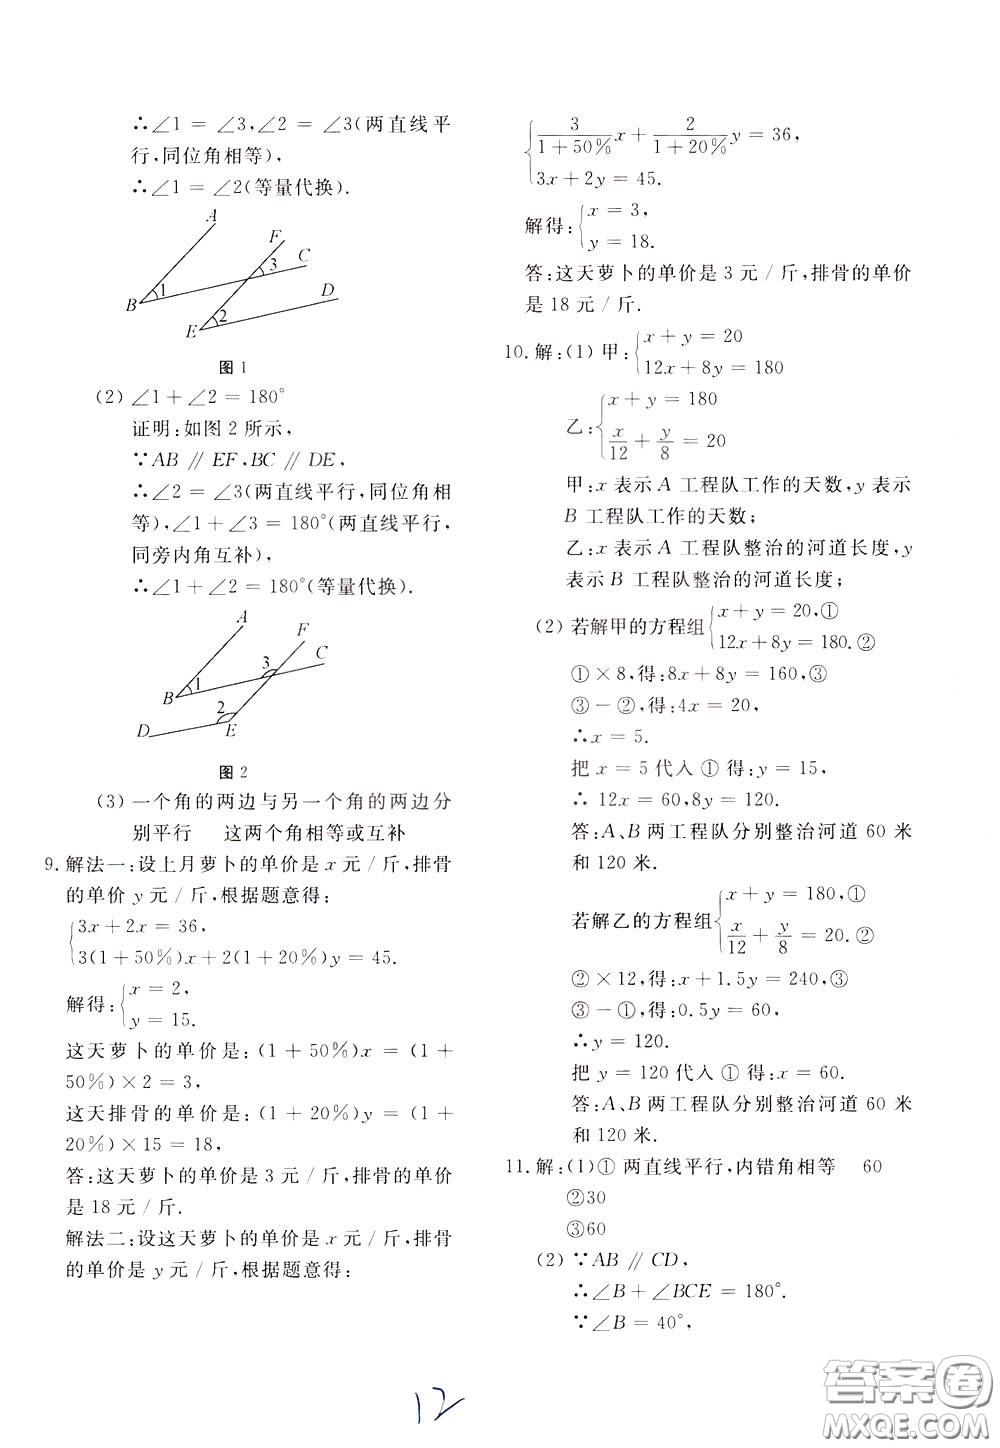 ∴∠1 = ∠3,∠2 = ∠3(两直线平
行,同位角相等),
∴∠1 = ∠2(等量代换).
A
F
C
3
D
B
1
2
E
图 1
(2) ∠1 + ∠2 = 180°
证明:如图 2 所示,
∵AB ∥ EF,BC ∥ DE,
∴∠2 = ∠3(两直线平行,同位角相
等),∠1 + ∠3 = 180°(两直线平行,
同旁内角互补),
∴∠1 + ∠2 = 180°(等量代换).
A
F
C
3
1
B
2
D
E
图 2
(3) 一个角的两边与另一个角的两边分
别平行 这两个角相等或互补
9. 解法一:设上月萝卜的单价是 x 元 / 斤,排骨
的单价 y 元 / 斤,根据题意得:
{3x + 2x = 36,
3(1 + 50%)x + 2(1 + 20%)y = 45.
解得:{x = 2,
y = 15.
这天萝卜的单价是:(1 + 50%)x = (1 +
50%) × 2 = 3,
这天排骨的单价是:(1 + 20%)y = (1 +
20%) × 15 = 18,
答:这天萝卜的单价是 3 元 / 斤,排骨的单价
是 18 元 / 斤.
解法二:设这天萝卜的单价是 x 元 / 斤,排骨
的单价是 y 元 / 斤,根据题意得:
{3/(1 + 50%)x + 2/(1 + 20%)y = 36,
3x + 2y = 45.
解得:{x = 3,
y = 18.
答:这天萝卜的单价是 3 元 / 斤,排骨的单价
是 18 元 / 斤.
10. 解:(1) 甲:{x + y = 20
12x + 8y = 180
乙:{x + y = 180
x/12 + y/8 = 20
甲:x 表示 A 工程队工作的天数,y 表示
B 工程队工作的天数;
乙:x 表示 A 工程队整治的河道长度,y
表示 B 工程队整治的河道长度;
(2) 若解甲的方程组{x + y = 20,①
12x + 8y = 180.②
① × 8,得:8x + 8y = 160,③
③ − ②,得:4x = 20,
∴x = 5.
把 x = 5 代入 ① 得:y = 15,
∴ 12x = 60,8y = 120.
答:A、B 两工程队分别整治河道 60 米
和 120 米.
若解乙的方程组{x + y = 180,①
x/12 + y/8 = 20.②
② × 12,得:x + 1.5y = 240,③
③ − ①,得:0.5y = 60,
∴y = 120.
把 y = 120 代入 ① 得:x = 60.
答:A、B 两工程队分别整治河道 60 米
和 120 米.
11. 解:(1)① 两直线平行,内错角相等 60
②30
③60
(2) ∵AB ∥ CD,
∴∠B + ∠BCE = 180°.
∵∠B = 40°,
12
答案圈
MXQE.COM